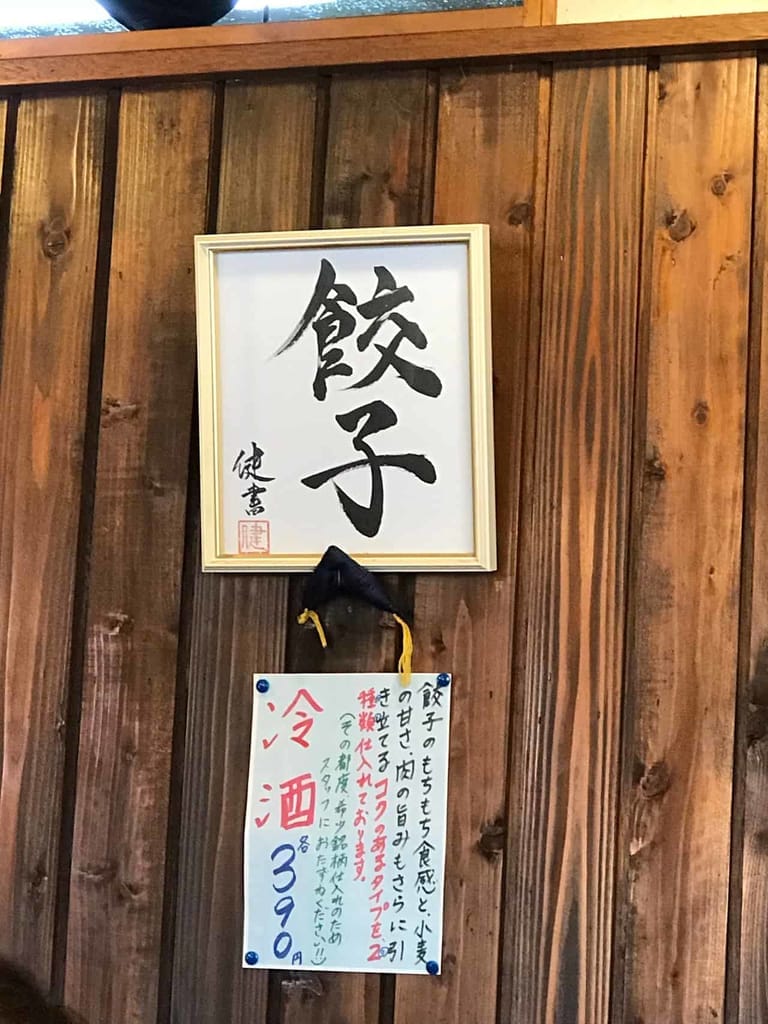 餃子
健書
健
餃子のもちもち食感と、小麦
の甘さ、肉の旨みもさらに引
き立てるコクのあるタイプを、2
種類仕入れております。
(その都度、希少銘柄仕入れのため
スタッフにおたずねください!!)
冷酒
各390円